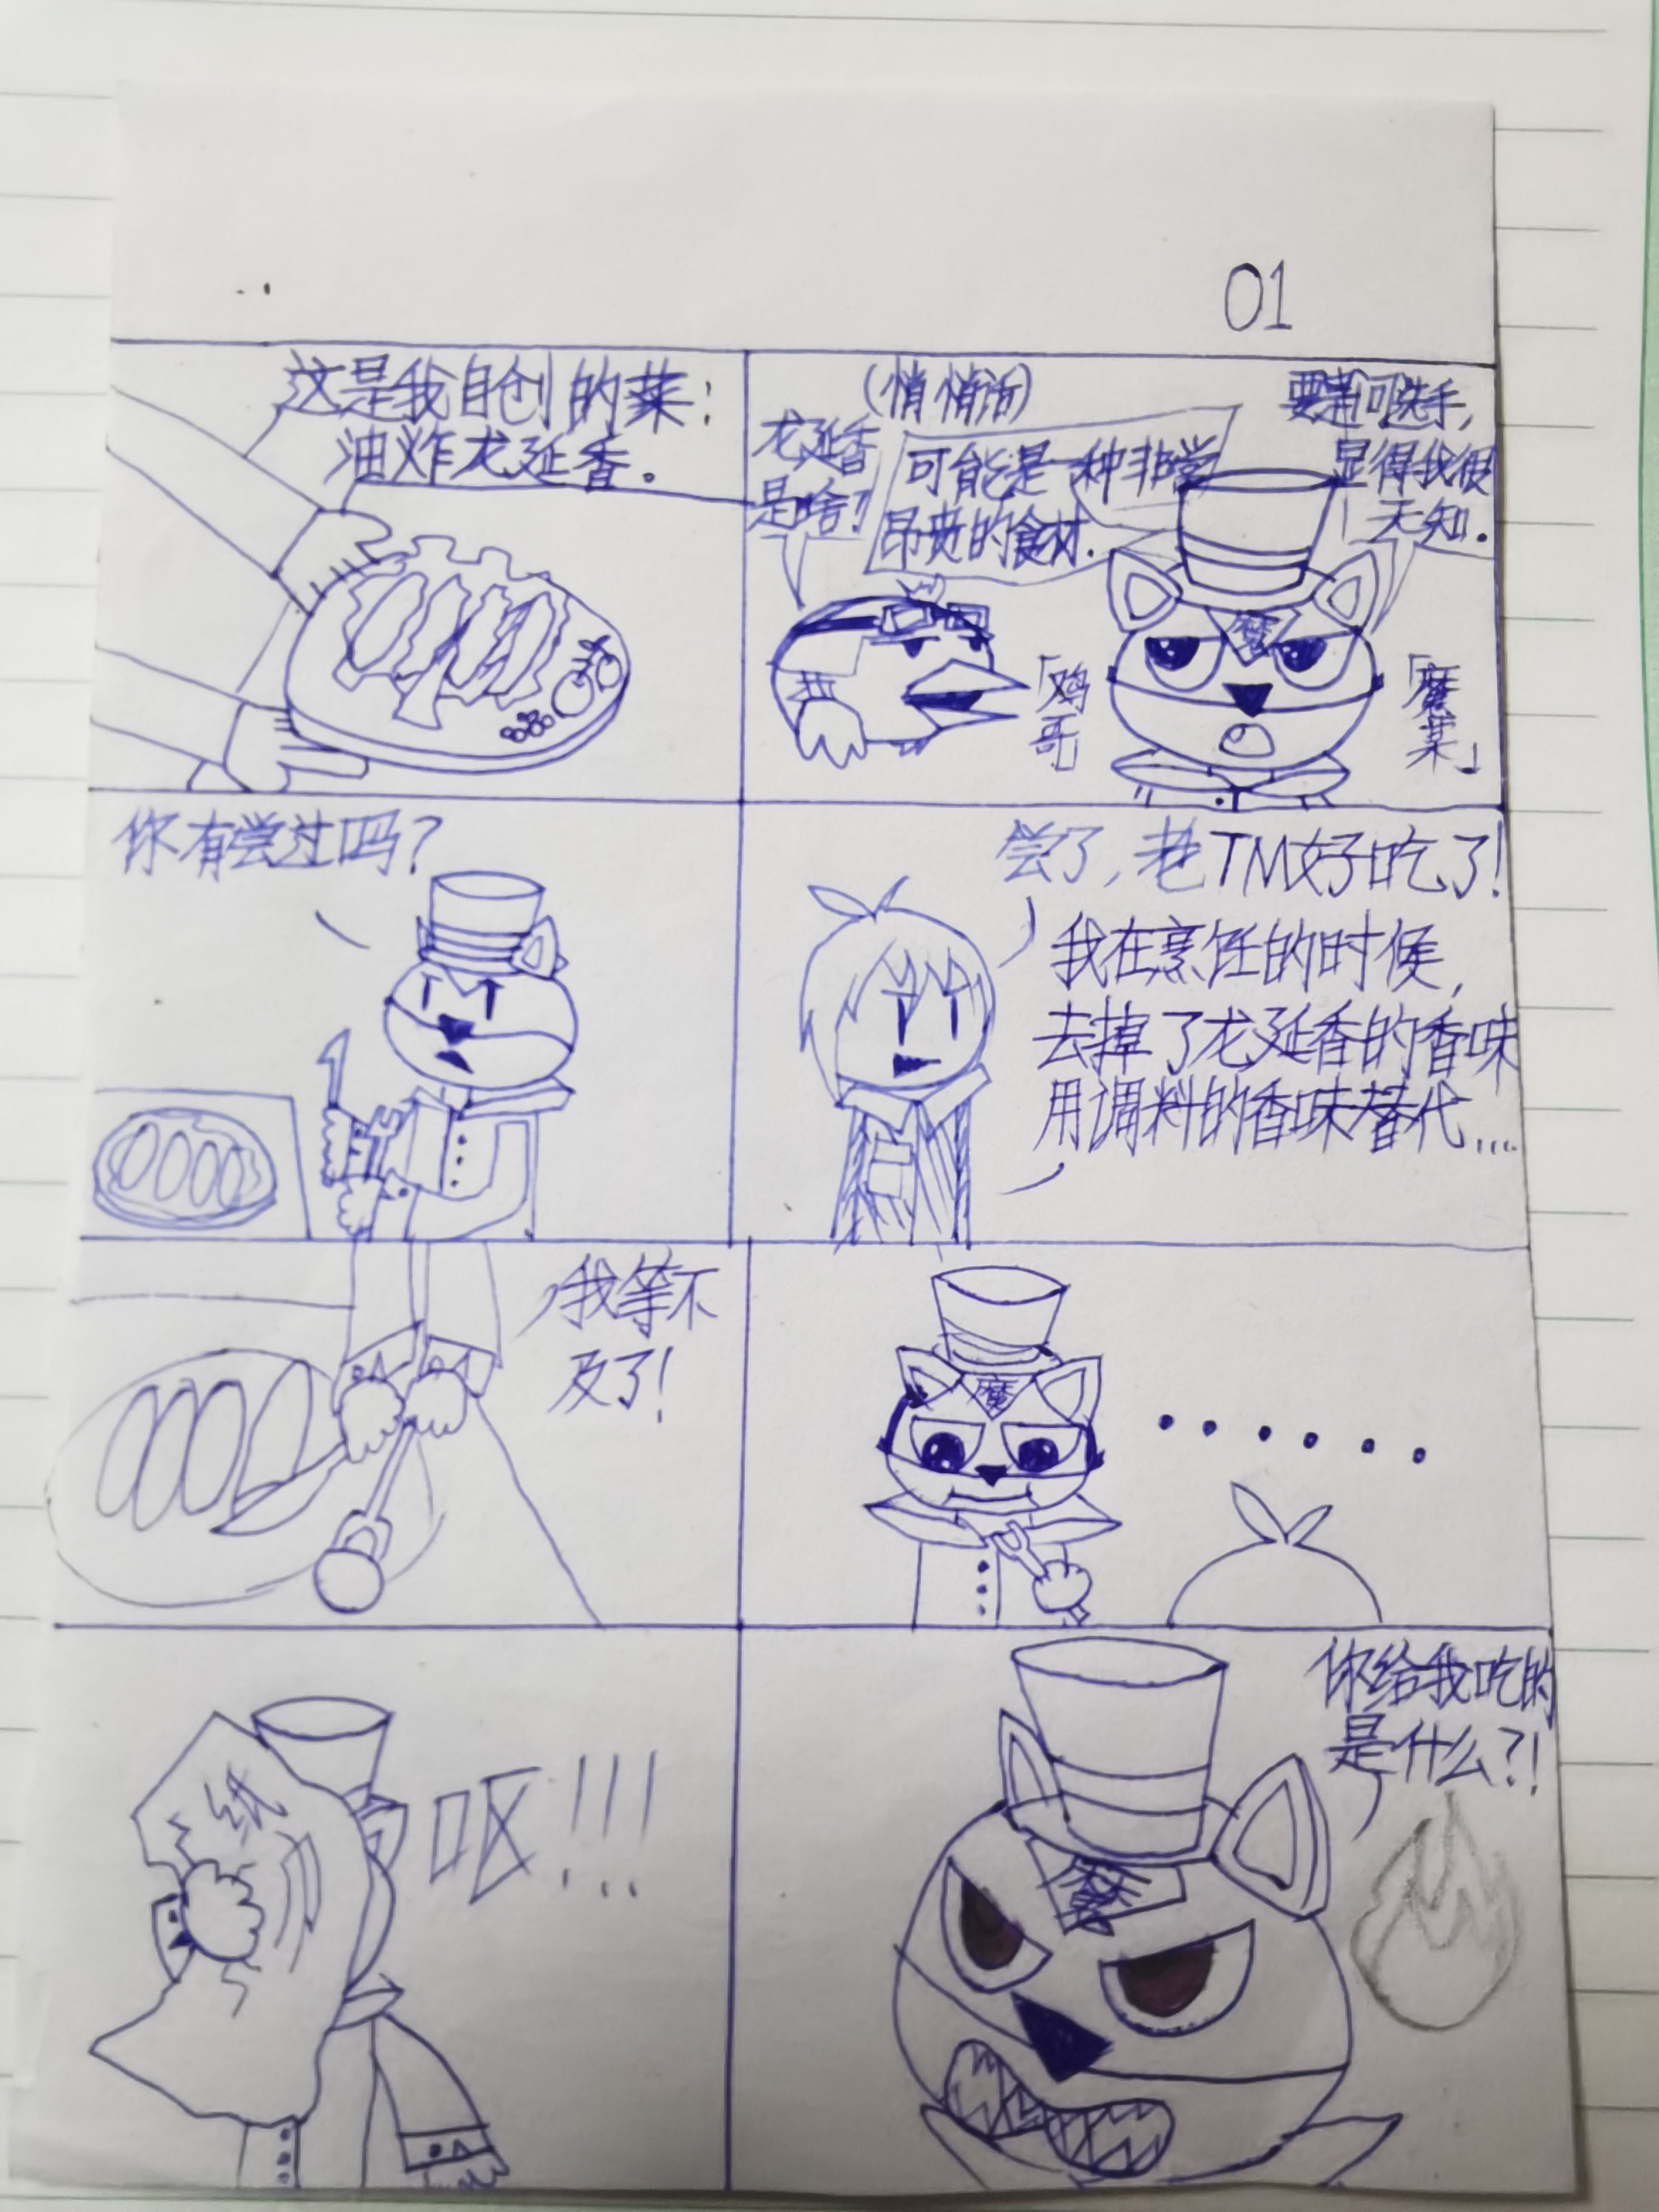 01
这是我自创的菜:
油炸龙延香.
(悄悄话)
龙延香
是啥!
可能是一种非常
昂贵的食材.
要是问选手,
显得我很
无知.
「鸡
哥」
魔
「魔
某」
你有尝过吗?
尝了,老TM好吃了!
我在烹饪的时候,
去掉了龙延香的香味
用调料的香味替代....
我等不
及了!
魔
······
纸
呕!!!
你给我吃的
是什么?!
魔